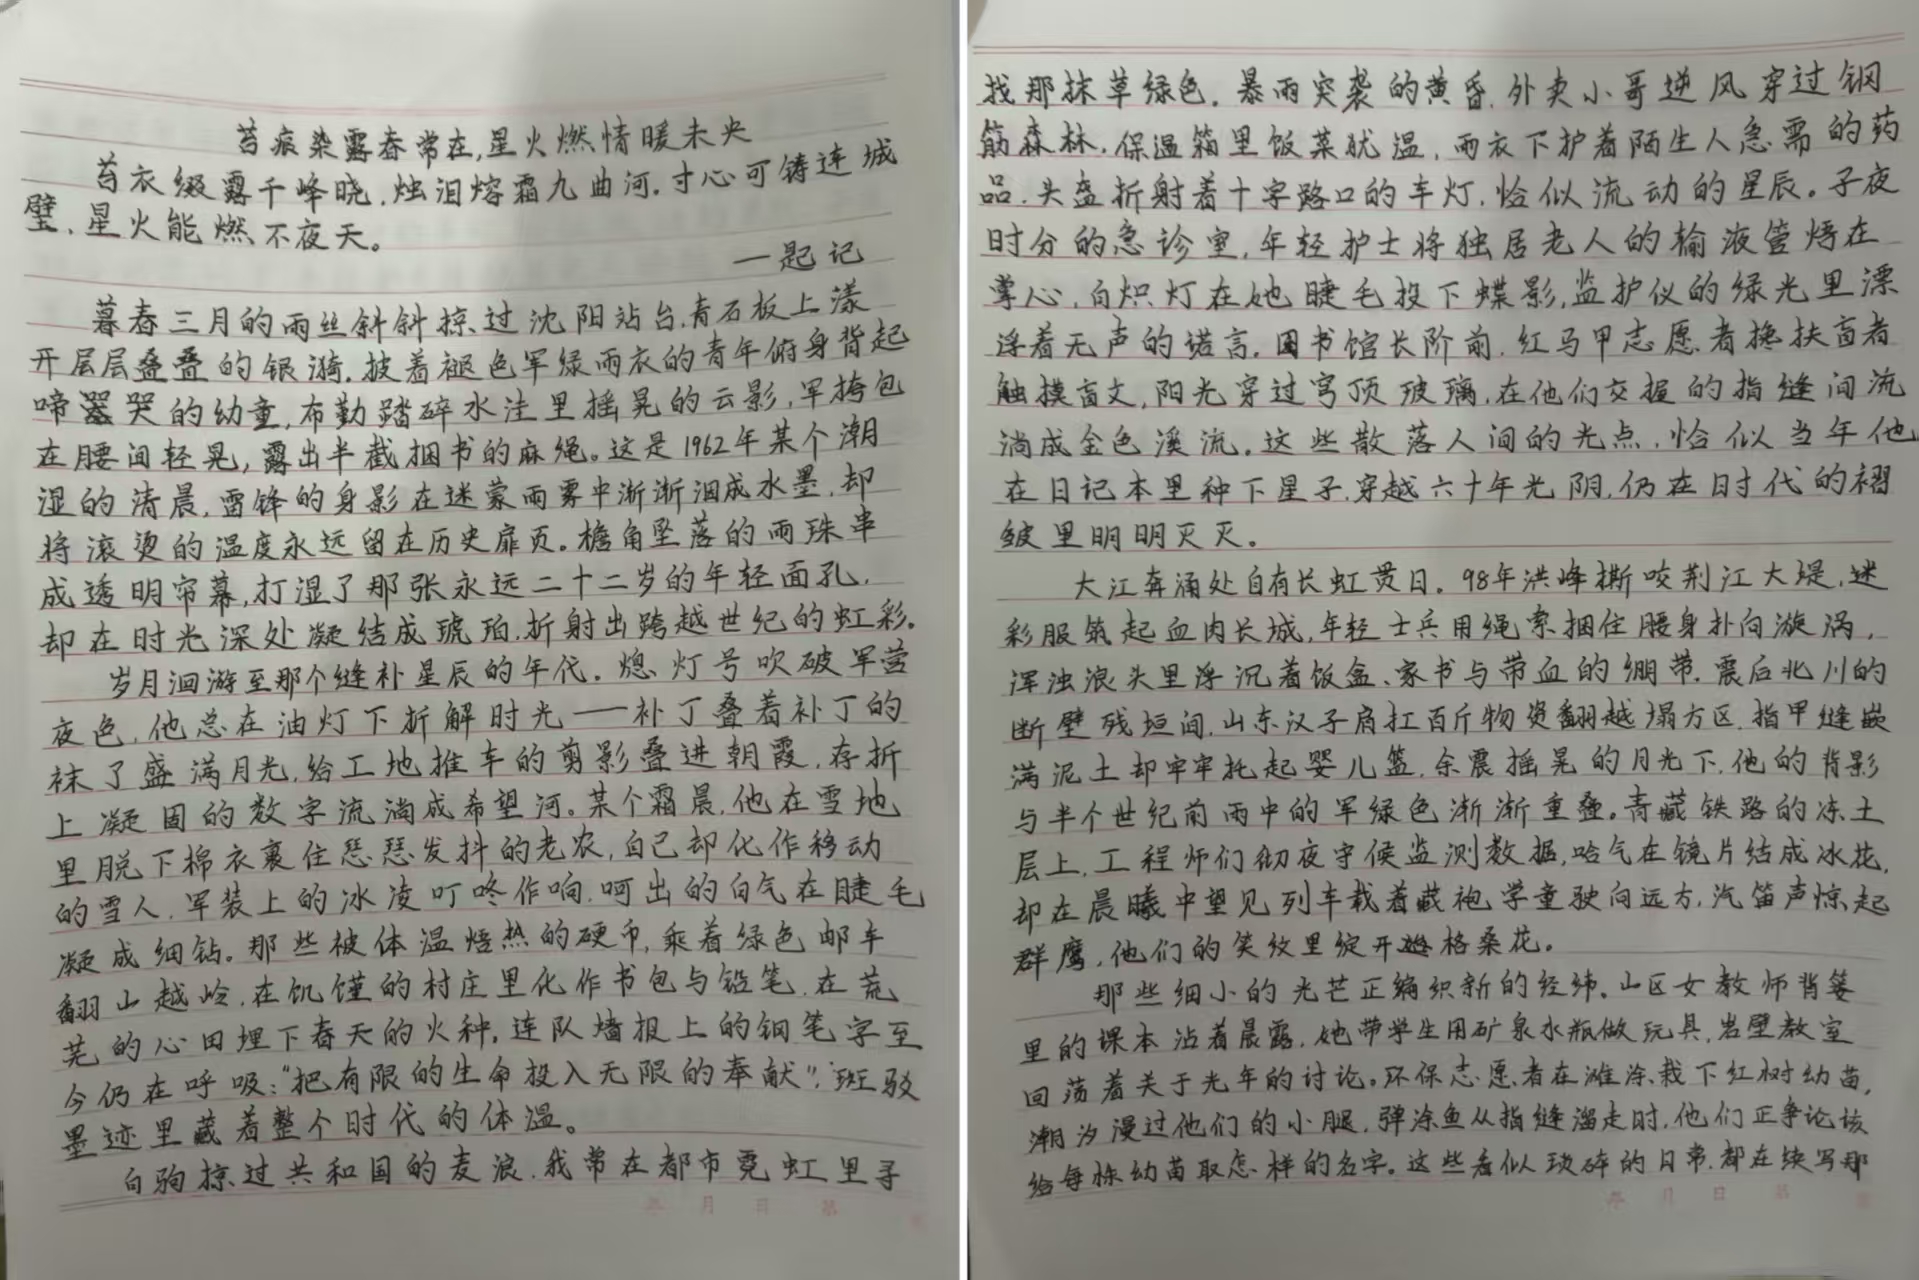 苔痕染露春常在,星火燃情暖未央
苔衣缀露千峰晓,烛泪熔霜九曲河.寸心可铸连城
璧,星火能燃不夜天。
—题记
暮春三月的雨丝斜斜掠过沈阳站台,青石板上漾
开层层叠叠的银漪.披着褪色军绿雨衣的青年俯身背起
啼哭的幼童,布勤踏碎水洼里摇晃的云影,军挎包
在腰间轻晃,露出半截捆书的麻绳。这是1962年某个潮
湿的清晨,雷锋的身影在迷蒙雨雾中渐渐洇成水墨,却
将滚烫的温度永远留在历史扉页。檐角坠落的雨珠串
成透明帘幕,打湿了那张永远二十二岁的年轻面孔,
却在时光深处凝结成琥珀,折射出跨越世纪的虹彩.
岁月洄游至那个缝补星辰的年代。熄灯号吹破军营
夜色,他总在油灯下折解时光——补丁叠着补丁的
袜了盛满月光,给工地推车的剪影叠进朝霞,存折
上凝固的数字流淌成希望河。某个霜晨,他在雪地
里脱下棉衣裹住瑟瑟发抖的老农,自己却化作移动
的雪人,军装上的冰凌叮咚作响,呵出的白气在睫毛
凝成细钻。那些被体温焐热的硬币,乘着绿色邮车
翻山越岭,在饥馑的村庄里化作书包与铅笔,在荒
芜的心田埋下春天的火种.连队墙报上的钢笔字至
今仍在呼吸:“把有限的生命投入无限的奉献”,斑驳
墨迹里藏着整个时代的体温。
白驹掠过共和国的麦浪,我常在都市霓虹里寻
找那抹草绿色.暴雨突袭的黄昏,外卖小哥逆风穿过钢
筋森林,保温箱里饭菜犹温,雨衣下护着陌生人急需的药
品,头盔折射着十字路口的车灯,恰似流动的星辰。子夜
时分的急诊室,年轻护士将独居老人的输液管焐在
掌心,白炽灯在她睫毛投下蝶影,监护仪的绿光里漂
浮着无声的诺言.图书馆长阶前,红马甲志愿者搀扶盲者
触摸盲文,阳光穿过穹顶玻璃,在他们交握的指缝间流
淌成金色溪流。这些散落人间的光点,恰似当年他
在日记本里种下星子,穿越六十年光阴,仍在时代的褶
皱里明明灭灭。
大江奔涌处自有长虹贯日。98年洪峰撕咬荆江大堤,迷
彩服筑起血肉长城,年轻士兵用绳索捆住腰身扑向漩涡,
浑浊浪头里浮沉着饭盒、家书与带血的绷带.震后北川的
断壁残垣间,山东汉子肩扛百斤物资翻越塌方区,指甲缝嵌
满泥土却牢牢托起婴儿篮,余震摇晃的月光下,他的背影
与半个世纪前雨中的军绿色渐渐重叠。青藏铁路的冻土
层上,工程师们彻夜守候监测数据,哈气在镜片结成冰花,
却在晨曦中望见列车载着藏袍学童驶向远方,汽笛声惊起
群鹰,他们的笑纹里绽开格桑花。
那些细小的光芒正编织新的经纬。山区女教师背篓
里的课本沾着晨露,她带学生用矿泉水瓶做玩具,岩壁教室
回荡着关于光年的讨论。环保志愿者在滩涂栽下红树幼苗,
潮汐漫过他们的小腿,弹涂鱼从指缝溜走时,他们正争论该
给每株幼苗取怎样的名字。这些看似琐碎的日常,都在续写那
年 月 日 第
年 月 日 第